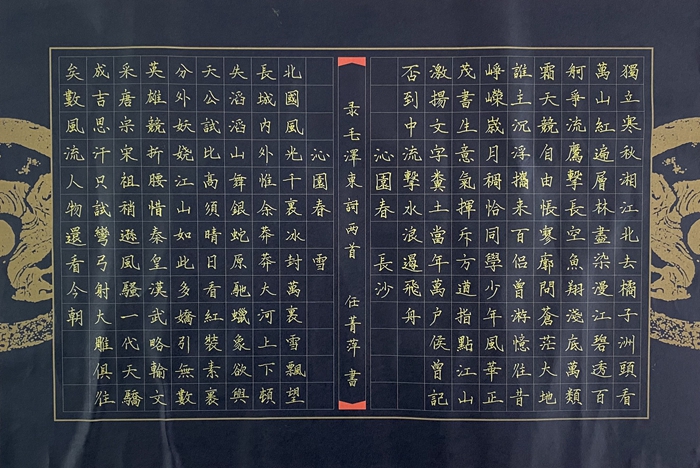 獨立寒秋湘江北去橘子洲頭看
萬山紅遍層林盡染漫江碧透百
舸爭流鷹擊長空魚翔淺底萬類
霜天競自由悵寥廓問蒼茫大地
誰主沉浮攜來百侶曾游憶往昔
崢嶸歲月稠恰同學少年風華正
茂書生意氣揮斥方遒指點江山
激揚文字糞土當年萬户侯曾記
否到中流擊水浪遏飛舟
沁園春 長沙
录毛澤東詞两首 任菁萍書
沁園春 雪
北國風光千裏冰封萬裏雪飄望
長城内外惟余莽莽大河上下頓
失滔滔山舞銀蛇原馳蠟象欲與
天公試比高須晴日看紅裝素裹
分外妖娆江山如此多嬌引無數
英雄競折腰惜秦皇漢武略輸文
采唐宗宋祖稍遜風騷一代天驕
成吉思汗只試彎弓射大雕俱往
矣數風流人物還看今朝